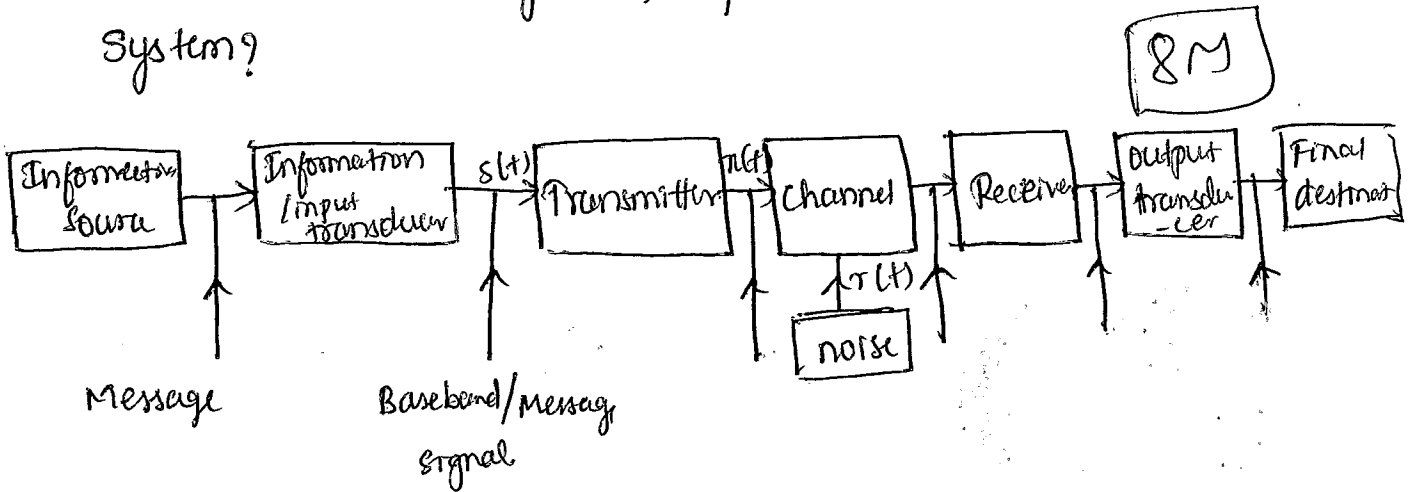 System?
8M
Information
Source
Information
/input
transducer
s(t)
Transmitter
x(t)
Channel
Receiver
output
transdu
-cer
Final
destinat
r(t)
noise
Message
Baseband/Messag
signal